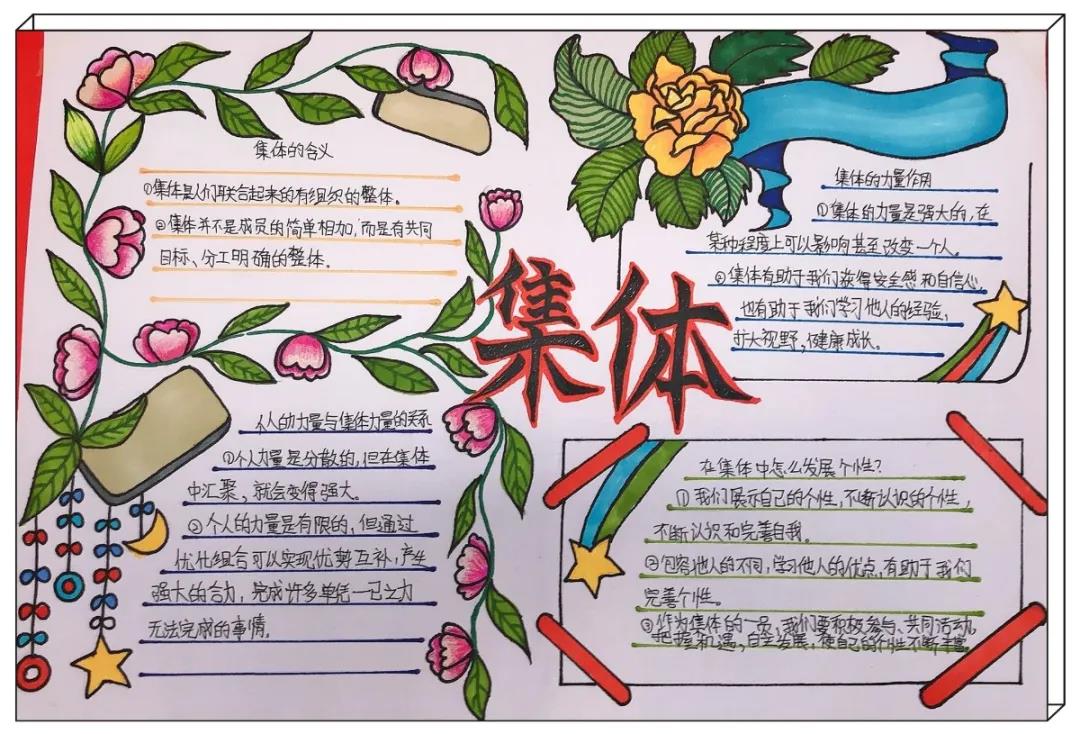 集体的含义
①集体是人们联合起来的有组织的整体。
②集体并不是成员的简单相加,而是有共同
目标、分工明确的整体。
集体
集体的力量作用
①集体的力量是强大的,在
某种程度上可以影响甚至改变一个人。
②集体有助于我们获得安全感和自信心,
也有助于我们学习他人的经验,
扩大视野,健康成长。
个人的力量与集体力量的关系
①个人力量是分散的,但在集体
中汇聚,就会变得强大。
②个人的力量是有限的,但通过
优化组合可以实现优势互补,产生
强大的合力,完成许多单凭一己之力
无法完成的事情。
在集体中怎么发展个性?
①我们展示自己的个性,不断认识的个性,
不断认识和完善自我。
②包容他人的不同,学习他人的优点,有助于我们
完善个性。
③作为集体的一员,我们要积极参与、共同活动,
把握机遇,自主发展,使自己的个性不断丰富